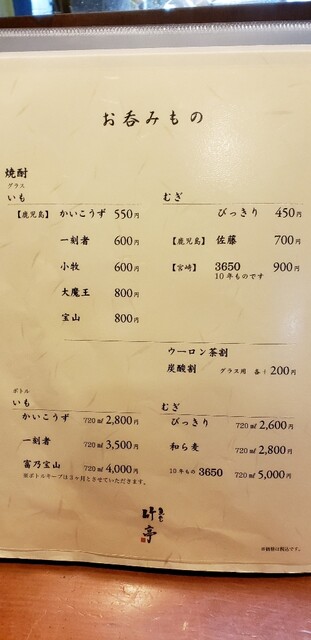 お呑みもの
焼酎
グラス
いも
【鹿児島】 かいこうず 550円
一刻者 600円
小牧 600円
大魔王 800円
宝山 800円
むぎ
びっきり 450円
【鹿児島】 佐藤 700円
【宮崎】 3650 900円
10年ものです
ウーロン茶割
炭酸割 グラス用 各+200円
ボトル
いも
かいこうず 720㎖ 2,800円
一刻者 720㎖ 3,500円
富乃宝山 720㎖ 4,000円
※ボトルキープは3ヶ月とさせていただきます。
むぎ
びっきり 720㎖ 2,600円
和ら麦 720㎖ 2,800円
10年もの 3650 720㎖ 5,000円
亭
※価格は税込です。